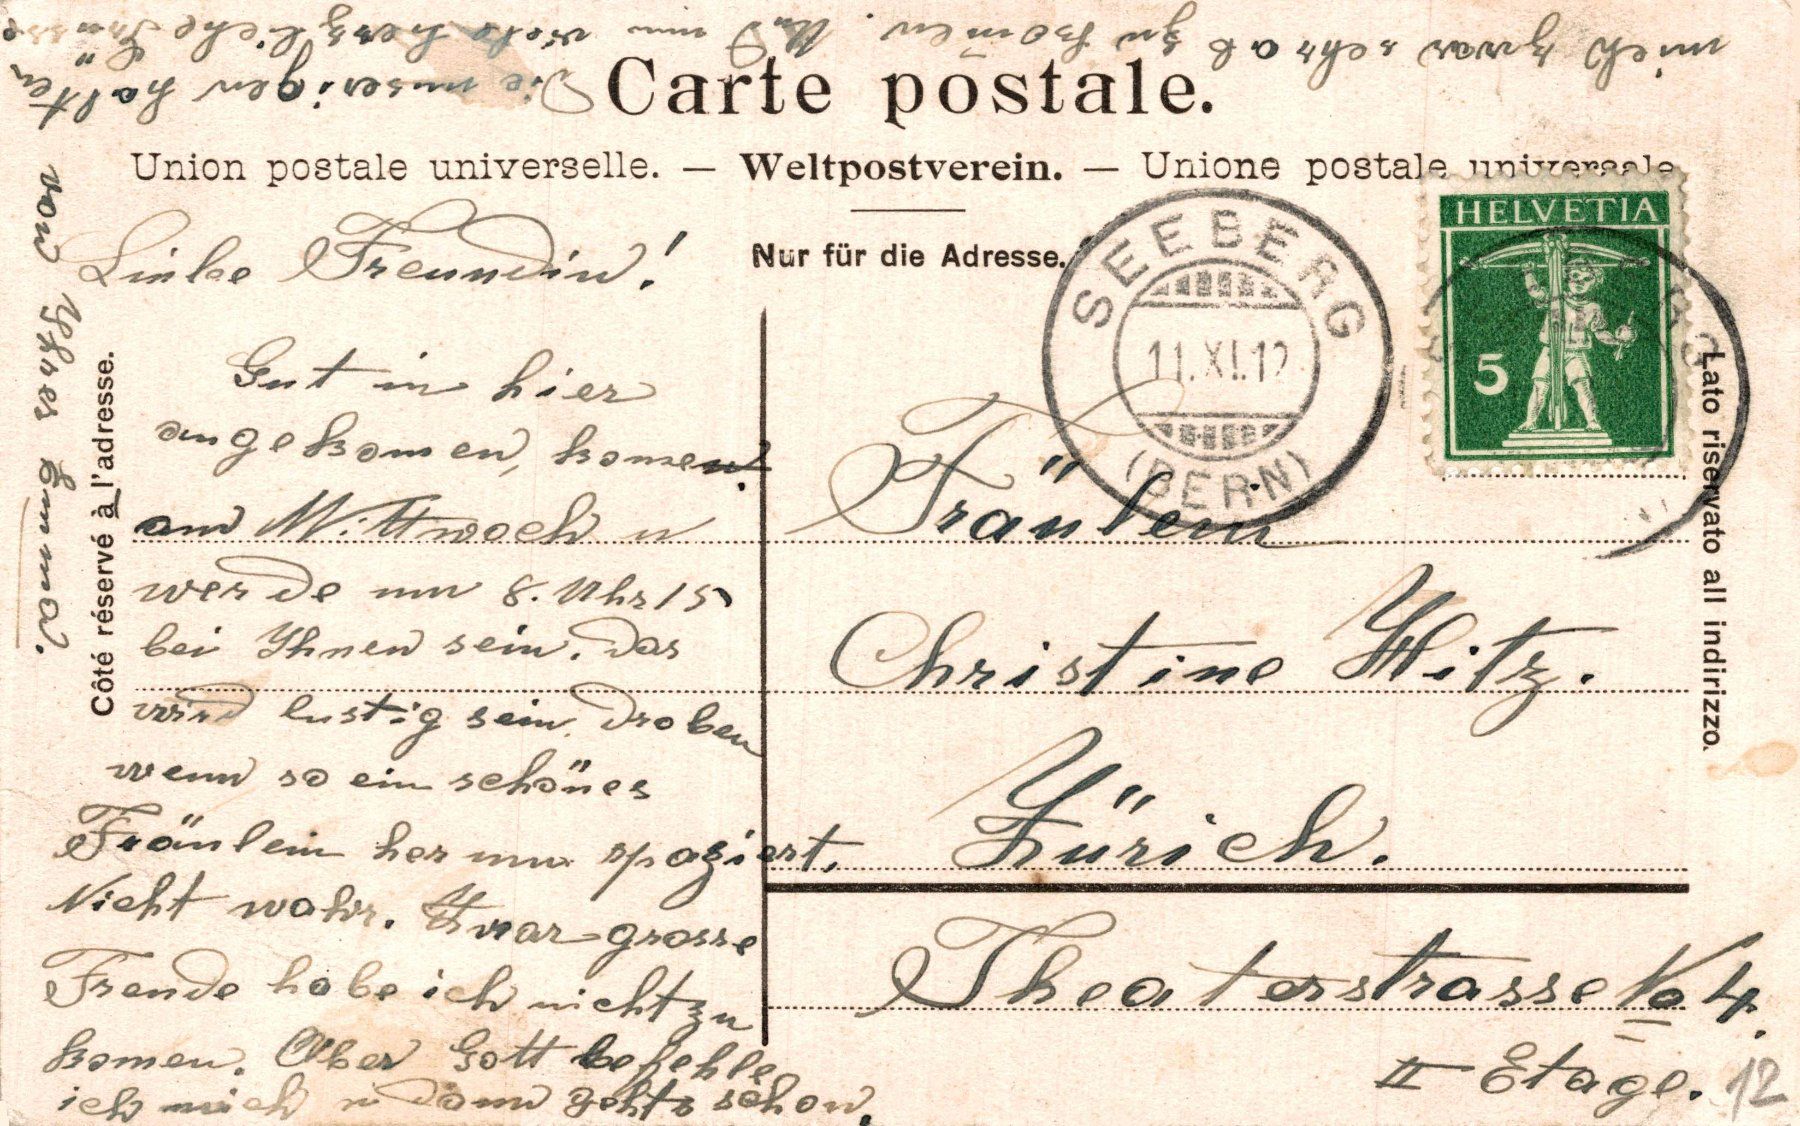 Carte postale.
Union postale universelle. — Weltpostverein. — Unione postale universale
Nur für die Adresse.
Côté réservé à l'adresse.
Lato riservato all indirizzo.
SEEBERG
11.XI.12
(BERN)
HELVETIA
5
Liebe Freundin!
Gut in hier
angekomen, komen
am Mittwoch u
werde um 8. Uhr 15
bei Ihnen sein. Das
wird lustig sein droben
wenn so ein schönes
Fräulein herum spaziert.
Nicht wahr. Zwar grosse
Freude habe ich nicht zu
komen. Aber Gott befehle
ich mich u dann gehts schon.
mich zwar schrab zu komen. Und nun viele herzliche Grüsse
Die musigen halten
von Ihres Emma.
Fräulein
Christine Witz.
Zürich.
Theaterstrasse No 4.
II Etage.
12